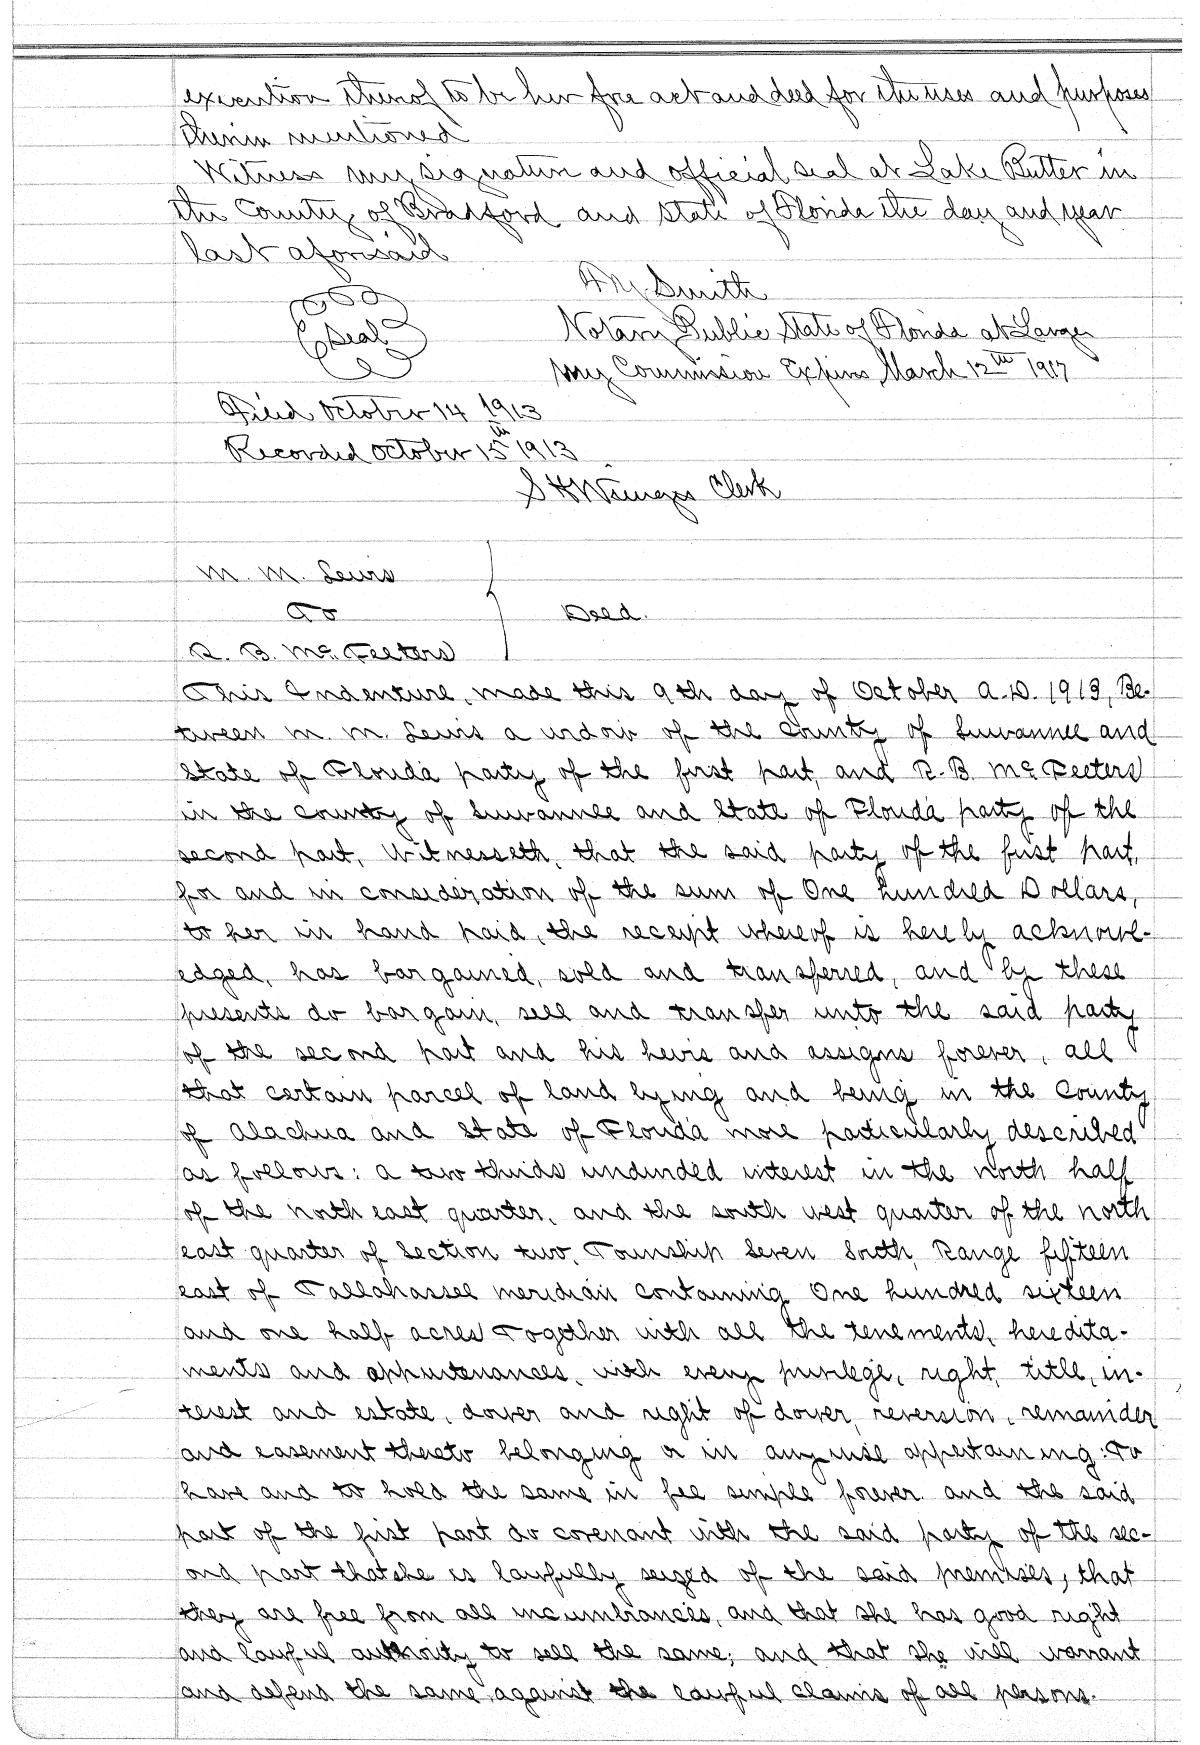 execution thereof to be her free act and deed for the uses and purposes
therein mentioned
Witness my signature and official seal at Lake Butler in
the County of Bradford and State of Florida the day and year
last aforesaid
Smith
Seal
Notary Public State of Florida at Large
My Commission Expires March 12th 1917
Filed October 14 1913
Recorded October 15th 1913
S H Wienges Clerk
M. M. Lewis
To
Deed.
R. B. McFeeters
This Indenture, made this 9th day of October A.D. 1913, Be-
tween M. M. Lewis a widow of the County of Suwannee and
State of Florida party of the first part, and R. B. McFeeters
in the County of Suwannee and State of Florida party of the
second part, Witnesseth, that the said party of the first part,
for and in consideration of the sum of One Hundred Dollars,
to her in hand paid, the receipt whereof is hereby acknowl-
edged, has bargained, sold and transferred, and by these
presents do bargain, sell and transfer unto the said party
of the second part and his heirs and assigns forever, all
that certain parcel of land lying and being in the County
of Alachua and State of Florida more particularly described
as follows: a two thirds undivided interest in the north half
of the north east quarter, and the south west quarter of the north
east quarter of Section two, Township Seven South, Range fifteen
east of Tallahassee meridian containing One hundred sixteen
and one half acres Together with all the tenements, heredita-
ments and appurtenances, with every privilege, right, title, in-
terest and estate, dower and right of dower, reversion, remainder
and easement thereto belonging or in anywise appertaining: To
have and to hold the same in fee simple forever and the said
part of the first part do covenant with the said party of the sec-
ond part that she is lawfully seized of the said premises, that
they are free from all incumbrances, and that she has good right
and lawful authority to sell the same; and that she will warrant
and defend the same against the lawful claims of all persons.